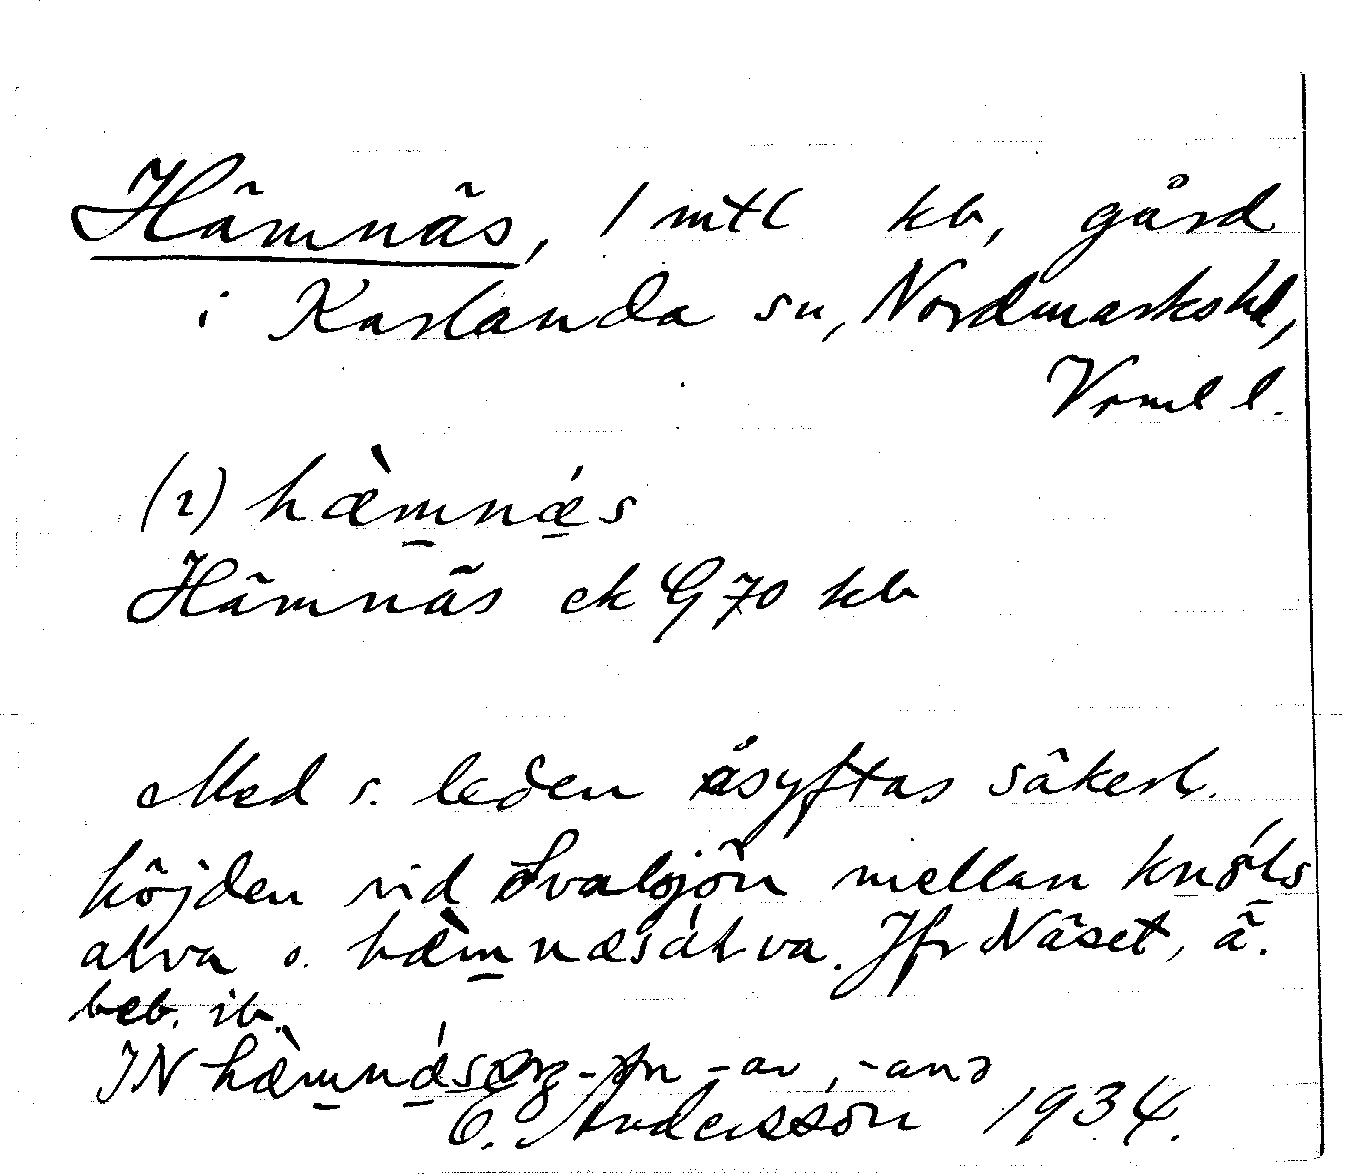 Hämnäs, 1 mtl kb, gård
i Karlanda sn, Nordmarks hd,
Vrml l.
(2) hæ̀mnǽs
Hämnäs ek G 70 kb
Med s. leden åsyftas säkerl.
höjden vid Svalsjön mellan
älva o. hæ̀mnæsǽlva. Jfr Näset, ä.
beb. ib.
IN hæ̀mnǽs -ar, -anə
E. Andersson 1934.